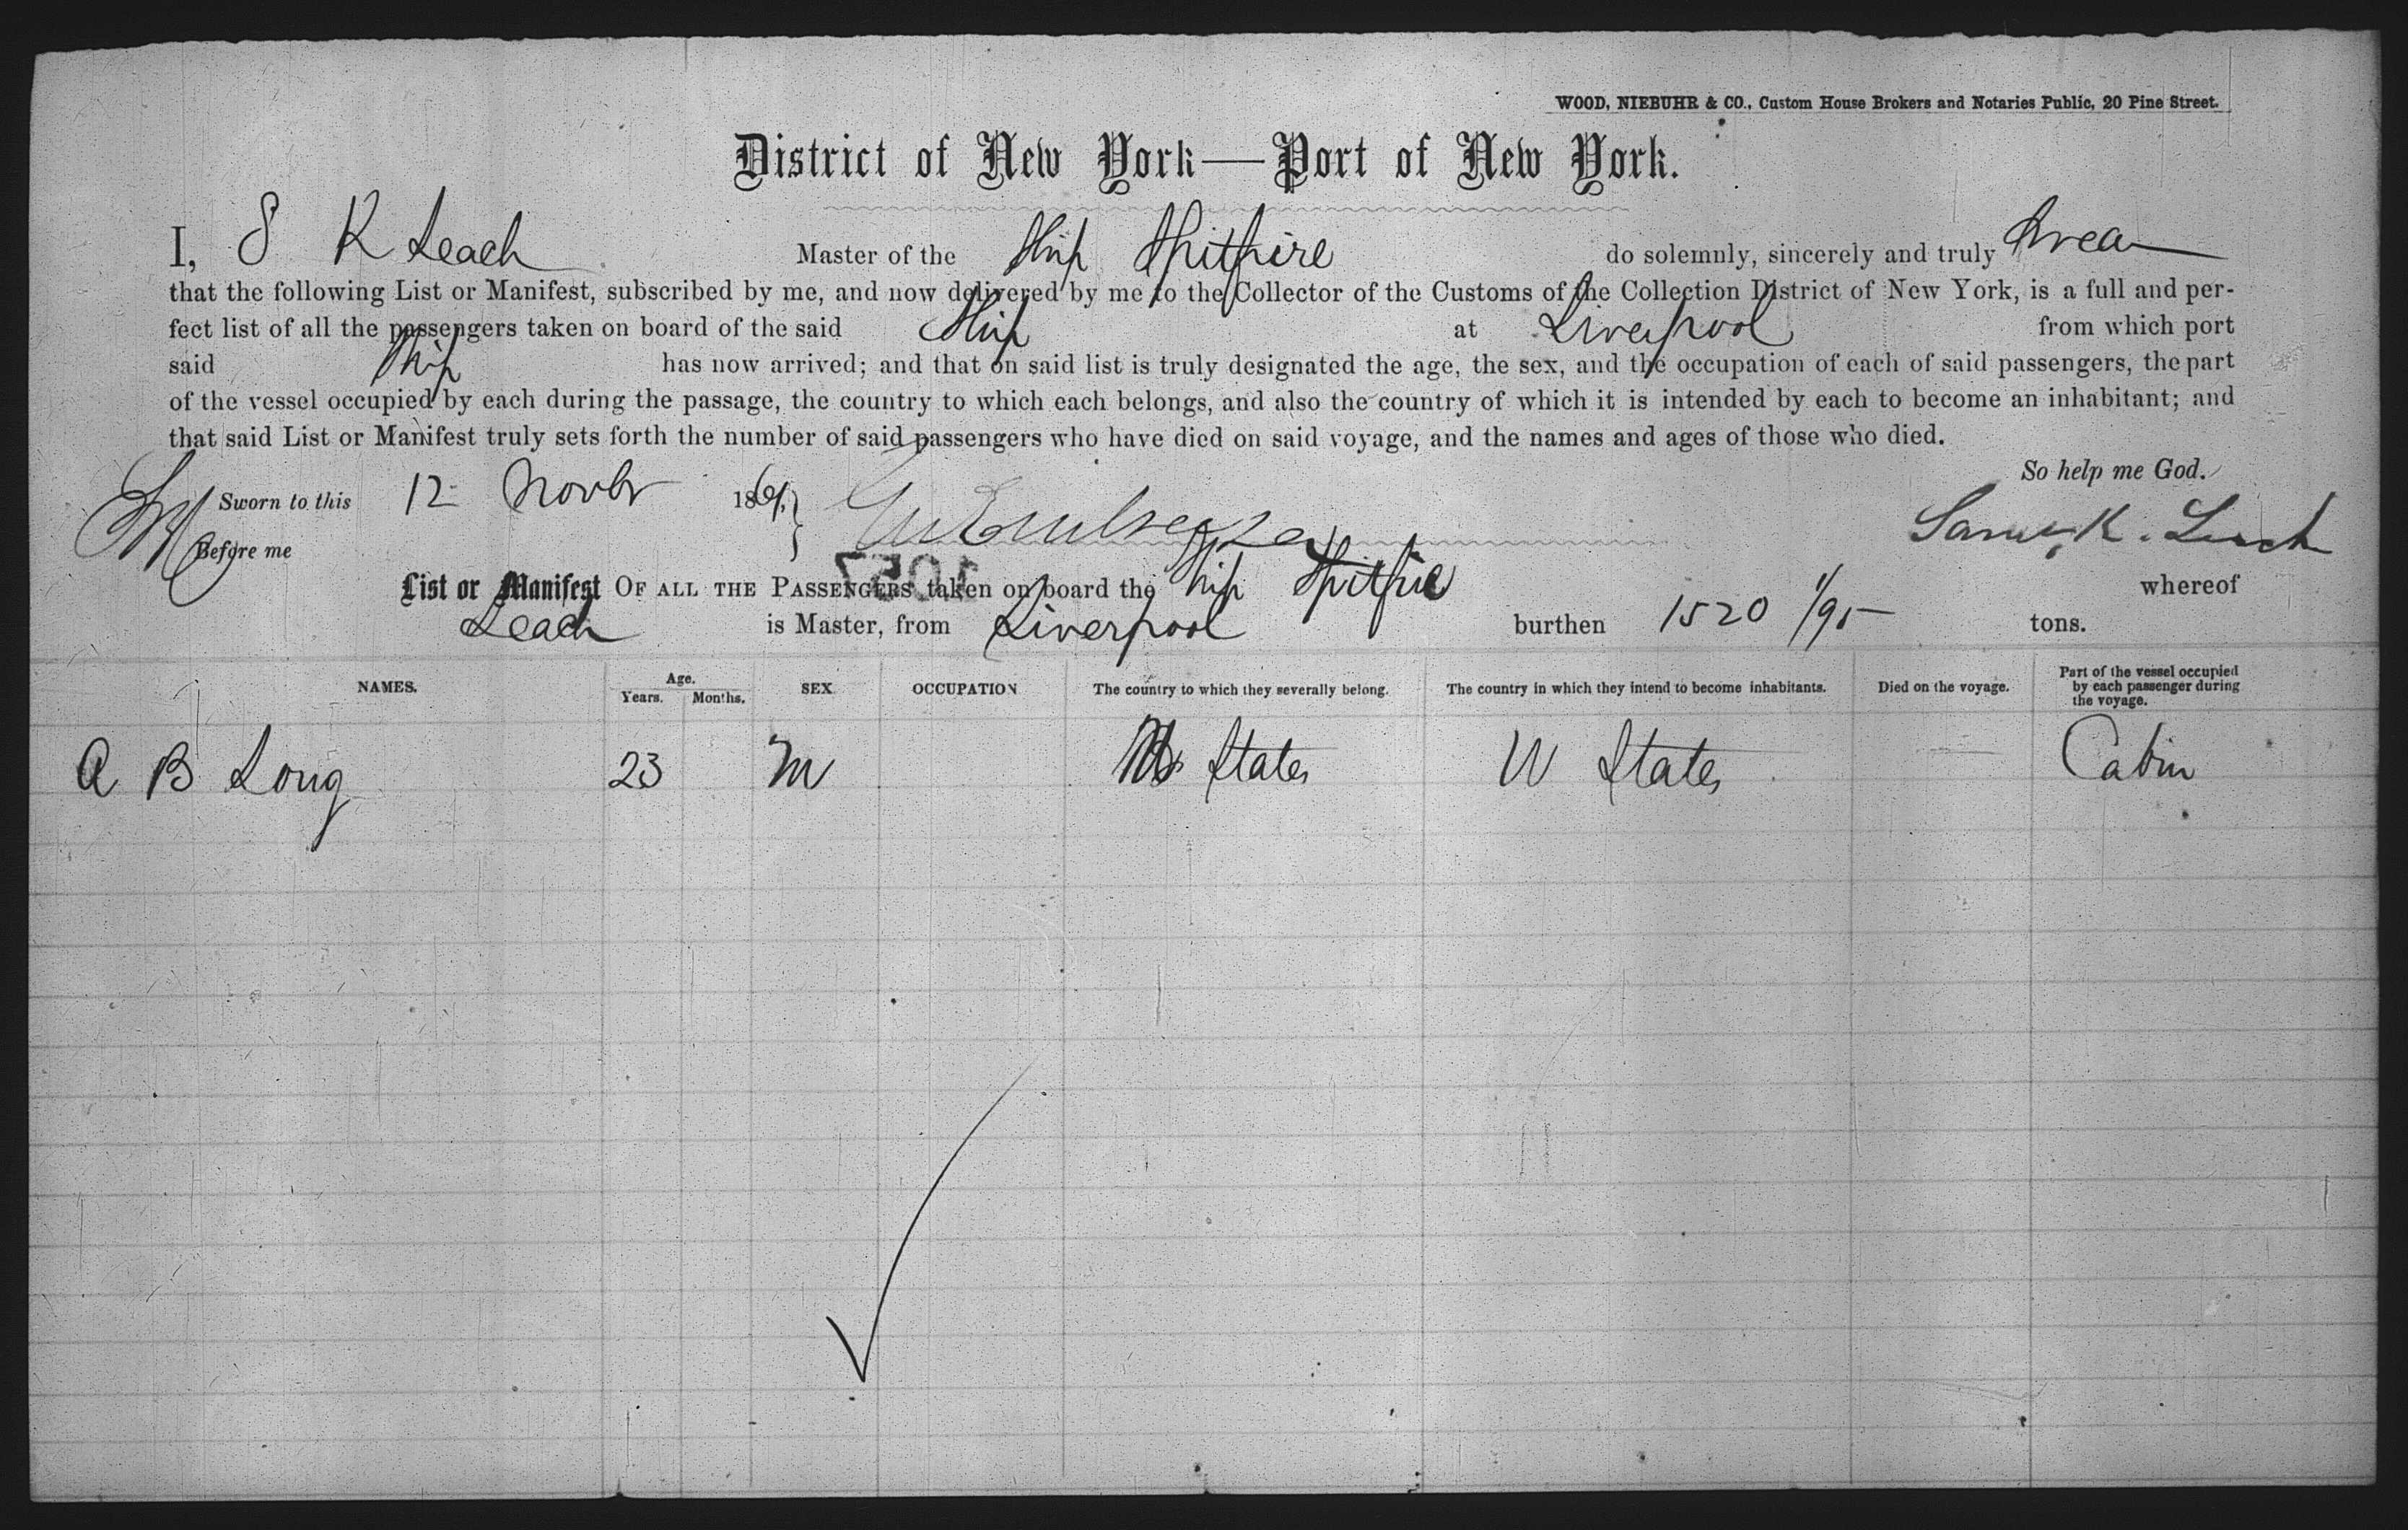 WOOD, NIEBUHR & CO., Custom House Brokers and Notaries Public, 20 Pine Street.
District of New York—Port of New York.
I, S K Leach Master of the Ship Spitfire do solemnly, sincerely and truly Swear
that the following List or Manifest, subscribed by me, and now delivered by me to the Collector of the Customs of the Collection District of New York, is a full and per-
fect list of all the passengers taken on board of the said Ship at Liverpool from which port
said Ship has now arrived; and that on said list is truly designated the age, the sex, and the occupation of each of said passengers, the part
of the vessel occupied by each during the passage, the country to which each belongs, and also the country of which it is intended by each to become an inhabitant; and
that said List or Manifest truly sets forth the number of said passengers who have died on said voyage, and the names and ages of those who died.
So help me God.
Sworn to this 12 Novbr 1861,
Before me
Saml. K. Leach
1057
List or Manifest OF ALL THE PASSENGERS taken on board the Ship Spitfire whereof
Leach is Master, from Liverpool burthen 1520 1/95 tons.
NAMES. Age. Years. Months. SEX OCCUPATION The country to which they severally belong. The country in which they intend to become inhabitants. Died on the voyage. Part of the vessel occupied by each passenger during the voyage.
A B Long 23 M States U States Cabin